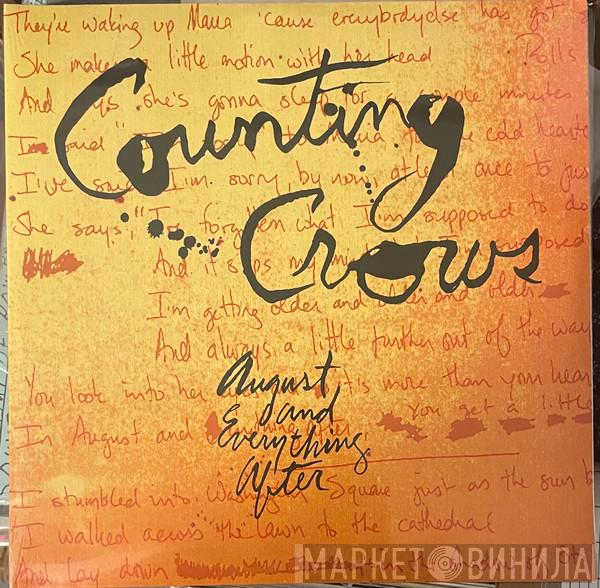 They're waking up Maria 'cause everybodyelse has got
She makes a little motion with her head Rolls
And says she's gonna sleep for a couple minutes
I'm said
I've said I'm sorry by now, at least once to just
She says, "I've forgotten what I'm supposed to do
And it slips my
I'm getting older and older and older
And always a little further out of the way
You look into her it's more than your heart
You get a little
In August and
I stumbled into Washington Square just as the sun
I walked across the lawn to the cathedral
And lay down
Counting
Crows
August
and
Everything
After
МАРКЕТ ВИНИЛА